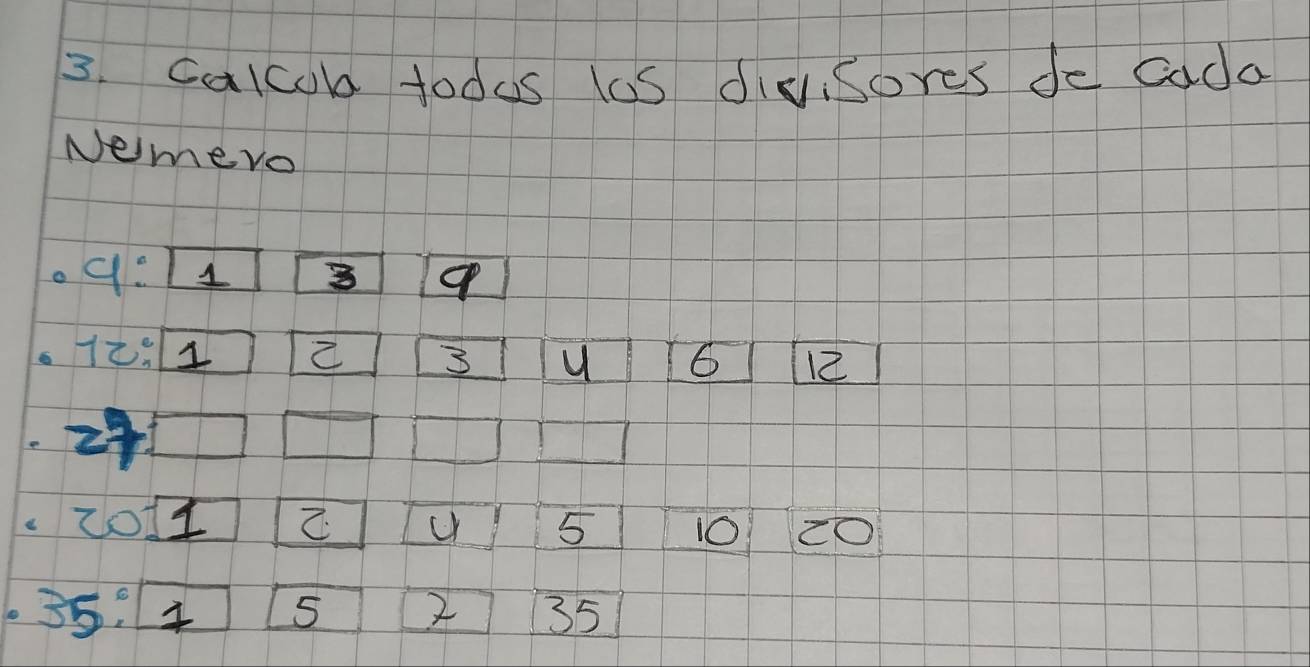 3. Calcula todos los divisores de cada
Número
. 9: 1 3 9
. 12: 1 2 3 4 6 12
. 27:
. 20: 1 2 4 5 10 20
. 35: 1 5 7 35